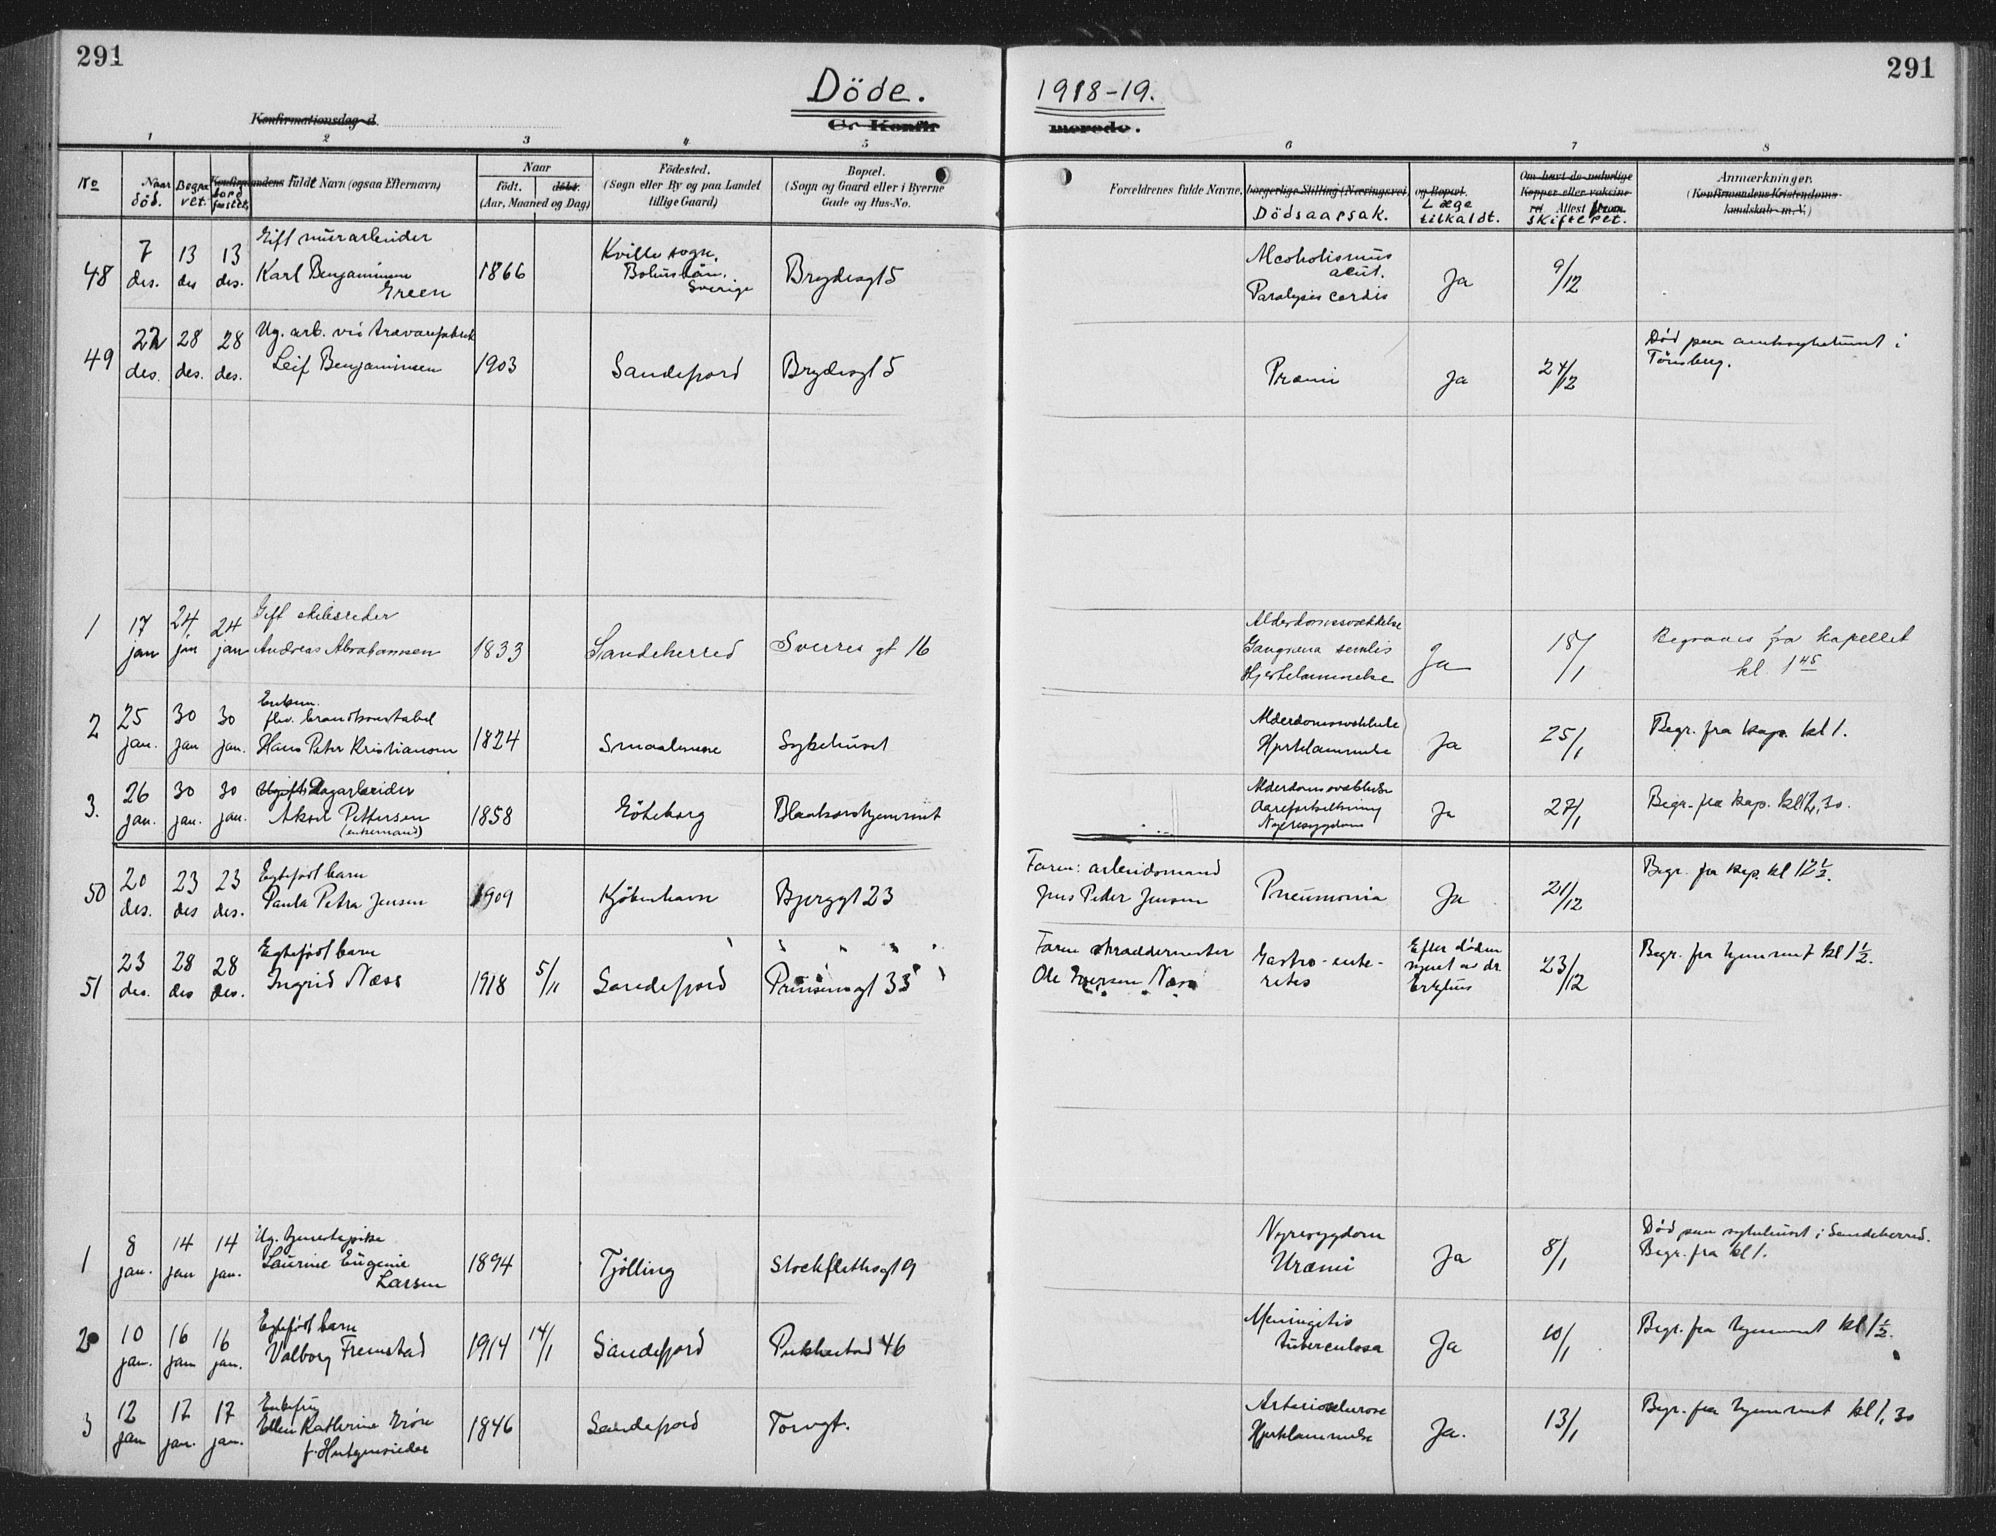 291
291
Döde.
1918-19.
Konfirmationsdag d.
Gr Konfir
merede.
1 2 3 4 5 6 7 8
No
Naar död.
Begra vet.
Jord fæstet,
Konfirmandens fulde Navn (ogsaa Efternavn)
Naar
födt.
döbt.
(Aar, Maaned og Dag)
Födested.
(Sogn eller By og paa Landet
tillige Gaard)
Bopæl.
(Sogn og Gaard eller i Byerne
Gade og Hus-No.
Forældrenes fulde Navne,
borgerlige Stilling (Næringsvei)
og Bopæl.
Dödsaarsak.
Læge
tilkaldt.
Om havt de naturlige
Kopper eller vaksine-
ret Attest
Skifteret.
Anmærkninger.
(Konfirmandens Kristendoms-
kundskab m. V.)
48
7 des.
13 des
13 des.
Gift murarbeider
Karl Benjaminsen
Green
1866
Kville sogn,
Bohuslän,
Sverige
Brydesgt 5
Alcoholismus
acut.
Paralysis cordis
Ja
9/12
49
22 des.
28 des.
28 des.
Ug. arb. ved trævarefabrik
Leif Benjaminsen
1903
Sandefjord
Brydesgt 5
Præmi
Ja
24/12
Död paa amtssykehuset i
Tönsberg.
1
17 jan
24 jan
24 jan
Gift skibsreder
Andreas Abrahamsen
1833
Sandeherred
Sverres gt 16
Alderdomssvækkelse
Gangræna senilis
Hjertelammelse
Ja
18/1
Begraves fra kapellet
kl. 1 45
2
25 jan.
30 jan
30 jan.
Enkem.
fhv. brandkonstabel
Hans Peter Kristiansen
1824
Smaalenene
Sykehuset
Alderdomssvækkelse
Hjertelammelse
Ja
25/1
Begr. fra kap. kl 1.
3.
26 jan.
30 jan.
30 jan.
Ugift Dagarbeider
Aksel Pettersen
(enkemand)
1858
Göteborg
Blaakorshjemmet
Alderdomssvækkelse
Aareforkalkning
Nyresygdom
Ja
27/1
Begr. fra kap. kl 12,30.
50
20 des.
23 des
23 des.
Egtefødt barn
Paula Petra Jensen
1909
Kjöbenhavn
Bjerggt 23
Faren: arbeidsmand
Jens Peder Jensen
Pneumonia
Ja
21/12
Begr. fra kap. kl 12½.
51
23 des.
28 des
28 des.
Egtefødt barn
Ingrid Næss
1918
5/11
Sandefjord
Prinsensgt 33
Faren skræddermester
Ole Iversen Næss
Gastro-ente-
rites
Efter døden
synet av dr.
23/12
Begr. fra hjemmet kl 1½.
1
8 jan.
14 jan
14 jan.
Ug. tjenestepike
Laurine Eugenie
Larsen
1894
Tjölling
Stockflethsgt 9
Nyresygdom
Uræmi
Ja
8/1
Död paa sykehuset i Sandeherred.
Begr. fra kl 1.
2
10 jan.
16 jan
16 jan.
Egtefødt barn
Valborg Fremstad
1914
14/1
Sandefjord
Pukkestad 46
Meningitis
tuberculosa
Ja
10/1
Begr. fra hjemmet kl 1½.
3
12 jan
17 jan.
17 jan.
Enkefru
Ellen Kathrine
1846
Sandefjord
Torvgt.
Hjertelammelse
Ja.
13/1
Begr. fra hjemmet kl 1,30